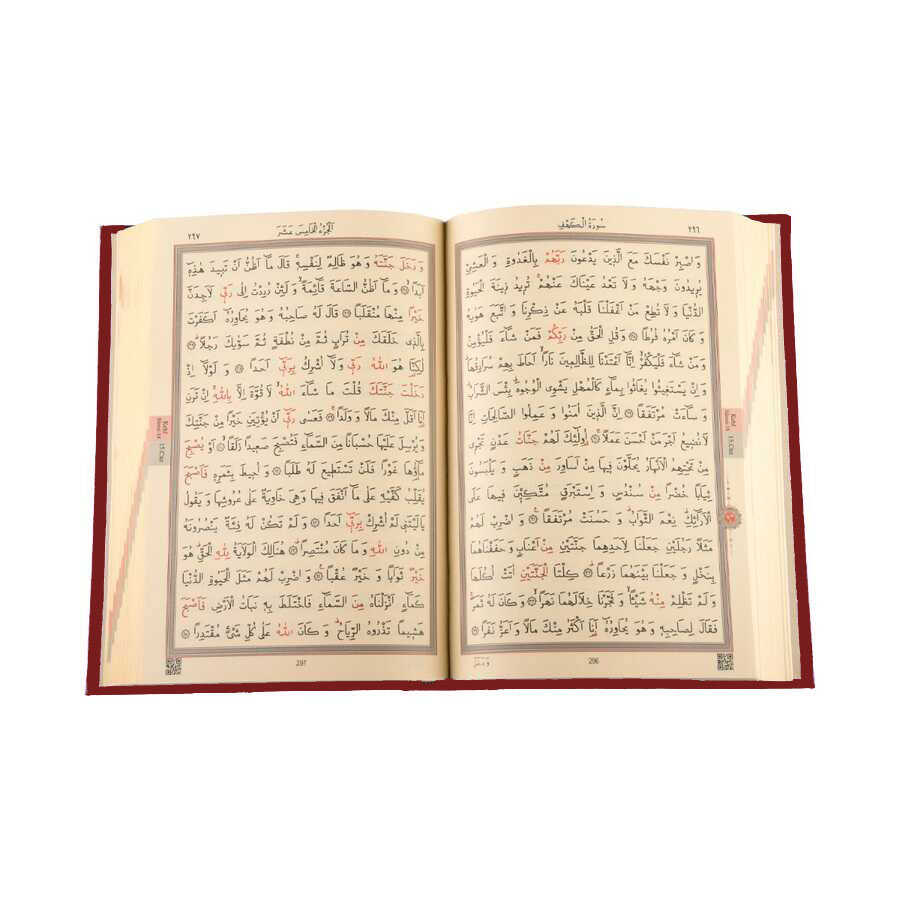 سُورَةُ الْكَهْفِ
٢٩٦
وَاصْبِرْ نَفْسَكَ مَعَ الَّذِينَ يَدْعُونَ رَبَّهُمْ بِالْغَدٰوةِ وَالْعَشِيِّ
يُرِيدُونَ وَجْهَهُ وَلَا تَعْدُ عَيْنَاكَ عَنْهُمْ تُرِيدُ زِينَةَ الْحَيٰوةِ
الدُّنْيَا وَلَا تُطِعْ مَنْ اَغْفَلْنَا قَلْبَهُ عَنْ ذِكْرِنَا وَاتَّبَعَ هَوٰيهُ
وَكَانَ اَمْرُهُ فُرُطًا ﴿٢٨﴾ وَقُلِ الْحَقُّ مِنْ رَبِّكُمْ فَمَنْ شَاءَ فَلْيُؤْمِنْ
وَمَنْ شَاءَ فَلْيَكْفُرْ اِنَّا اَعْتَدْنَا لِلظَّالِمِينَ نَارًا اَحَاطَ بِهِمْ سُرَادِقُهَا
وَاِنْ يَسْتَغِيثُوا يُغَاثُوا بِمَاءٍ كَالْمُهْلِ يَشْوِي الْوُجُوهَ بِئْسَ الشَّرَابُ
وَسَاءَتْ مُرْتَفَقًا ﴿٢٩﴾ اِنَّ الَّذِينَ اٰمَنُوا وَعَمِلُوا الصَّالِحَاتِ اِنَّا
لَا نُضِيعُ اَجْرَ مَنْ اَحْسَنَ عَمَلًا ﴿٣٠﴾ اُولٰئِكَ لَهُمْ جَنَّاتُ عَدْنٍ تَجْرِي
مِنْ تَحْتِهِمُ الْاَنْهَارُ يُحَلَّوْنَ فِيهَا مِنْ اَسَاوِرَ مِنْ ذَهَبٍ وَيَلْبَسُونَ
ثِيَابًا خُضْرًا مِنْ سُنْدُسٍ وَاِسْتَبْرَقٍ مُتَّكِئِينَ فِيهَا عَلَى
الْاَرَائِكِ نِعْمَ الثَّوَابُ وَحَسُنَتْ مُرْتَفَقًا ﴿٣١﴾ وَاضْرِبْ لَهُمْ
مَثَلًا رَجُلَيْنِ جَعَلْنَا لِاَحَدِهِمَا جَنَّتَيْنِ مِنْ اَعْنَابٍ وَحَفَفْنَاهُمَا
بِنَخْلٍ وَجَعَلْنَا بَيْنَهُمَا زَرْعًا ﴿٣٢﴾ كِلْتَا الْجَنَّتَيْنِ اٰتَتْ اُكُلَهَا
وَلَمْ تَظْلِمْ مِنْهُ شَيْئًا وَفَجَّرْنَا خِلَالَهُمَا نَهَرًا ﴿٣٣﴾ وَكَانَ لَهُ ثَمَرٌ
فَقَالَ لِصَاحِبِهِ وَهُوَ يُحَاوِرُهُ اَنَا اَكْثَرُ مِنْكَ مَالًا وَاَعَزُّ نَفَرًا ﴿٣٤﴾
296
وَدَخَلَ
15.Cüz
Kehf
اَلْجُزْءُ الْخَامِسَ عَشَرَ
٢٩٧
وَدَخَلَ جَنَّتَهُ وَهُوَ ظَالِمٌ لِنَفْسِهِ قَالَ مَا اَظُنُّ اَنْ تَبِيدَ هٰذِهِ
اَبَدًا ﴿٣٥﴾ وَمَا اَظُنُّ السَّاعَةَ قَائِمَةً وَلَئِنْ رُدِدْتُ اِلٰى رَبِّي لَاَجِدَنَّ
خَيْرًا مِنْهَا مُنْقَلَبًا ﴿٣٦﴾ قَالَ لَهُ صَاحِبُهُ وَهُوَ يُحَاوِرُهُ اَكَفَرْتَ
بِالَّذِي خَلَقَكَ مِنْ تُرَابٍ ثُمَّ مِنْ نُطْفَةٍ ثُمَّ سَوّٰيكَ رَجُلًا ﴿٣٧﴾
لٰكِنَّا هُوَ اللّٰهُ رَبِّي وَلَا اُشْرِكُ بِرَبِّي اَحَدًا ﴿٣٨﴾ وَلَوْلَا اِذْ
دَخَلْتَ جَنَّتَكَ قُلْتَ مَا شَاءَ اللّٰهُ لَا قُوَّةَ اِلَّا بِاللّٰهِ اِنْ تَرَنِ
اَنَا اَقَلَّ مِنْكَ مَالًا وَوَلَدًا ﴿٣٩﴾ فَعَسٰى رَبِّي اَنْ يُؤْتِيَنِ خَيْرًا مِنْ جَنَّتِكَ
وَيُرْسِلَ عَلَيْهَا حُسْبَانًا مِنَ السَّمَاءِ فَتُصْبِحَ صَعِيدًا زَلَقًا ﴿٤٠﴾ اَوْ يُصْبِحَ
مَاؤُهَا غَوْرًا فَلَنْ تَسْتَطِيعَ لَهُ طَلَبًا ﴿٤١﴾ وَاُحِيطَ بِثَمَرِهِ فَاَصْبَحَ
يُقَلِّبُ كَفَّيْهِ عَلٰى مَا اَنْفَقَ فِيهَا وَهِيَ خَاوِيَةٌ عَلٰى عُرُوشِهَا وَيَقُولُ
يَا لَيْتَنِي لَمْ اُشْرِكْ بِرَبِّي اَحَدًا ﴿٤٢﴾ وَلَمْ تَكُنْ لَهُ فِئَةٌ يَنْصُرُونَهُ
مِنْ دُونِ اللّٰهِ وَمَا كَانَ مُنْتَصِرًا ﴿٤٣﴾ هُنَالِكَ الْوَلَايَةُ لِلّٰهِ الْحَقِّ هُوَ
خَيْرٌ ثَوَابًا وَخَيْرٌ عُقْبًا ﴿٤٤﴾ وَاضْرِبْ لَهُمْ مَثَلَ الْحَيٰوةِ الدُّنْيَا
كَمَاءٍ اَنْزَلْنَاهُ مِنَ السَّمَاءِ فَاخْتَلَطَ بِهِ نَبَاتُ الْاَرْضِ فَاَصْبَحَ
هَشِيمًا تَذْرُوهُ الرِّيَاحُ وَكَانَ اللّٰهُ عَلٰى كُلِّ شَيْءٍ مُقْتَدِرًا ﴿٤٥﴾
297
15.Cüz
Kehf